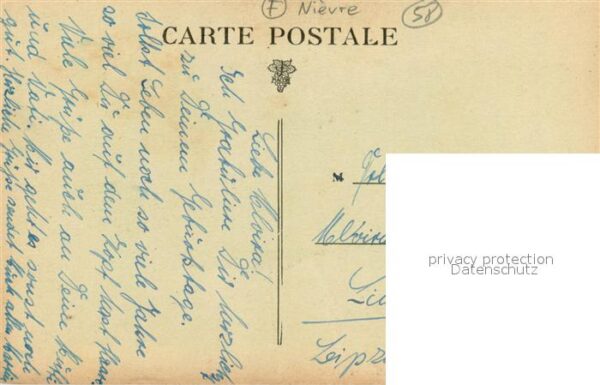 (F) Nièvre
58
CARTE POSTALE
Liebe Elvira!
Ich gratuliere Dir herzlich
zu Deinem Geburtstage.
Sollst Leben noch so viele Jahre
so viel Du auf dem Kopf hast Haare
Viele Grüße auch an Deine
und Vati. Mir geht es sonst noch
gut. Herzliche Grüße sendet
Frl
Elvira
Leipz
privacy protection
Datenschutz